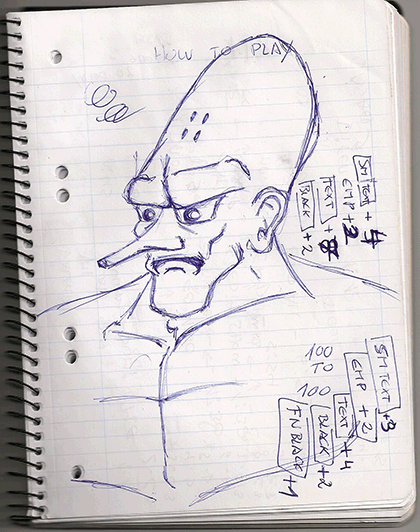 HOW TO PLAY
SM TEXT + 4
EMP + 2
TEXT + 8
BLACK + 2
100
TO
100
SM TEXT + 3
EMP + 2
TEXT + 4
BLACK + 2
TN BLACK + 1